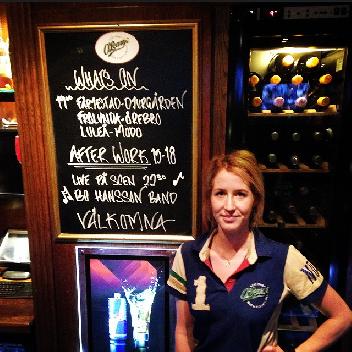 WHATS ON
19⁰⁰ FÄRJESTAD-DJURGÅRDEN
FRÖLUNDA-ÖREBRO
LULEÅ-MODO
AFTER WORK 15-18
LIVE PÅ SCEN 22³⁰
BO HANSSON BAND
VÄLKOMNA
1